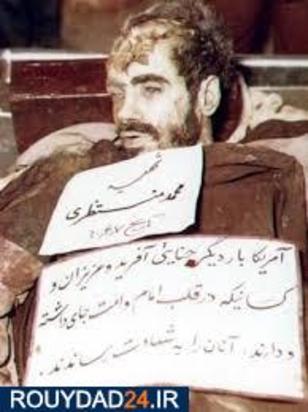 شهید
محمد منتظری
آمریکا بار دیگر جنایتی آفرید و عزیزان و
کسانیکه در قلب امام و امت جای داشته
و دارند، آنان را به شهادت رساندند
ROUYDAD24.IR